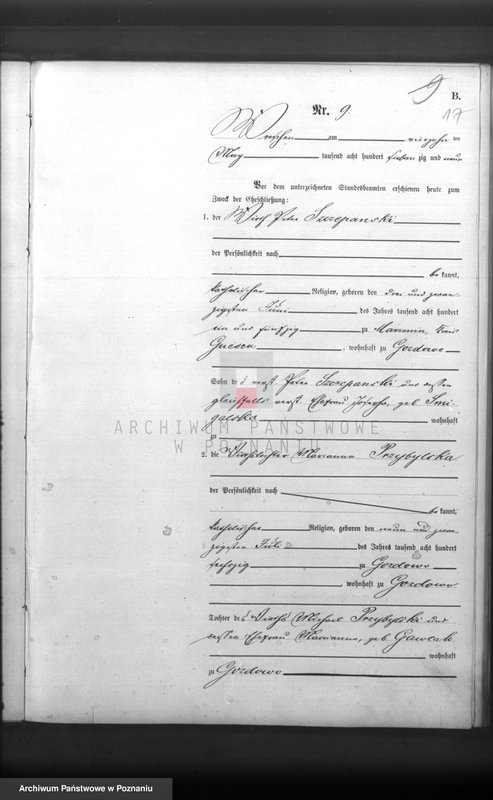 9
B.
17
Nr. 9.
Wreschen am vierzehn ten
May tausend acht hundert sieben zig und neun
Vor dem unterzeichneten Standesbeamten erschienen heute zum
Zweck der Eheschließung:
1. der Wirth Peter Szczepanski
der Persönlichkeit nach
be kannt,
katholischer Religion, geboren den drei und zwan
zigsten Juni des Jahres tausend acht hundert
ein und fünfzig zu Marzenin, Kreis
Gnesen, wohnhaft zu Gozdowo
Sohn des verst. Peter Szczepanski und dessen
gleichfalls verst. Ehefrau Josepha, geb. Smi
galska wohnhaft
zu
ARCHIWUM PAŃSTWOWE
W POZNANIU
2. die Wirthstochter Marianna Przybylska
der Persönlichkeit nach
be kannt,
katholischer Religion, geboren den neun und zwan
zigsten Juli des Jahres tausend acht hundert
sechszig zu Gozdowo
, wohnhaft zu Gozdowo
Tochter des Wirths Michael Przybylski und
dessen Ehefrau Marianna, geb. Gawlak
wohnhaft
zu Gozdowo
Archiwum Państwowe w Poznaniu